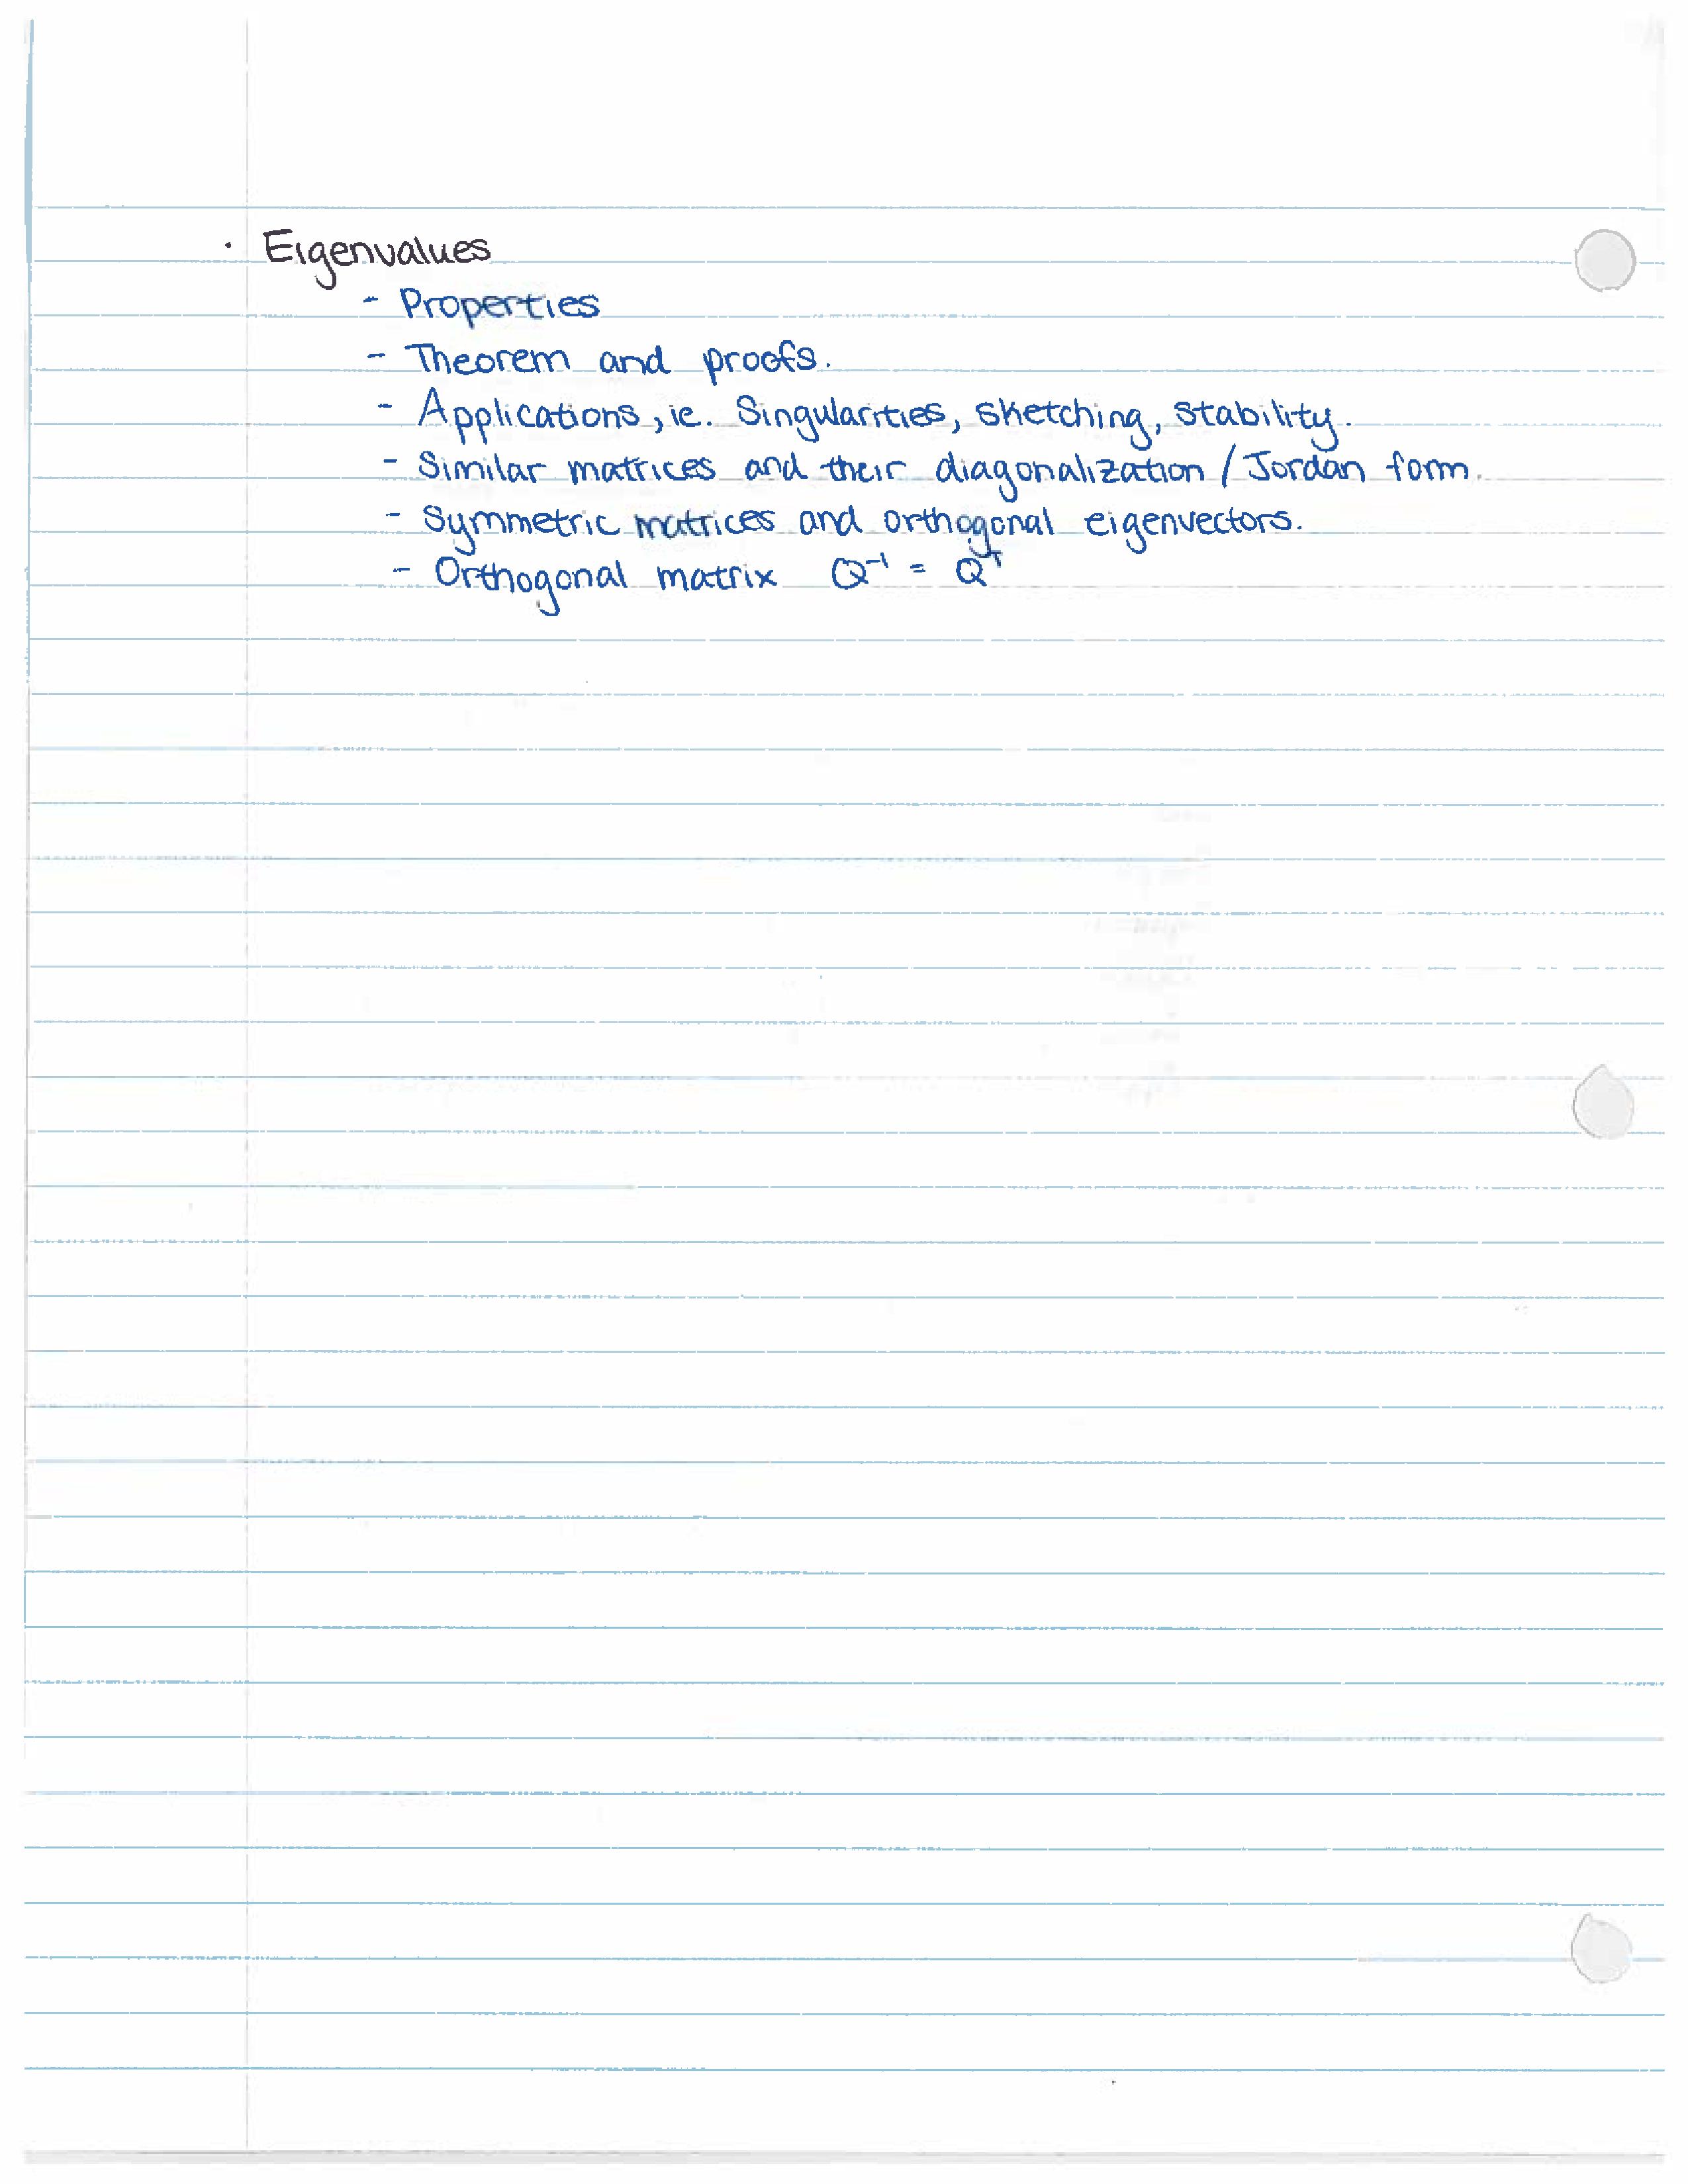 · Eigenvalues
- Properties
- Theorem and proofs.
- Applications, ie. Singularities, sketching, stability.
- Similar matrices and their diagonalization / Jordan form.
- Symmetric matrices and orthogonal eigenvectors.
- Orthogonal matrix Q⁻¹ = Qᵀ